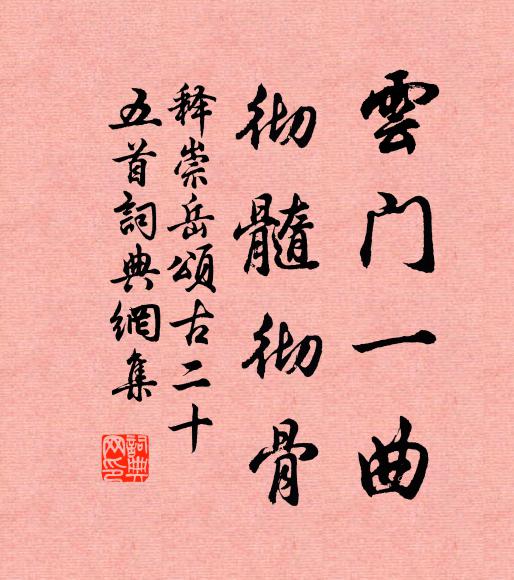 雲门一曲
彻髓彻骨
释崇岳頌古二十
五首詞典網集
詞典网印